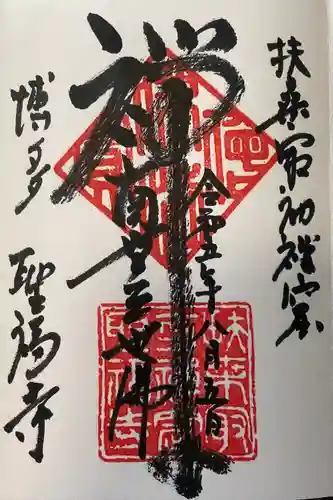 扶桑最初禅窟
令和五年八月五日
禅
南無三世佛
博多 聖福寺